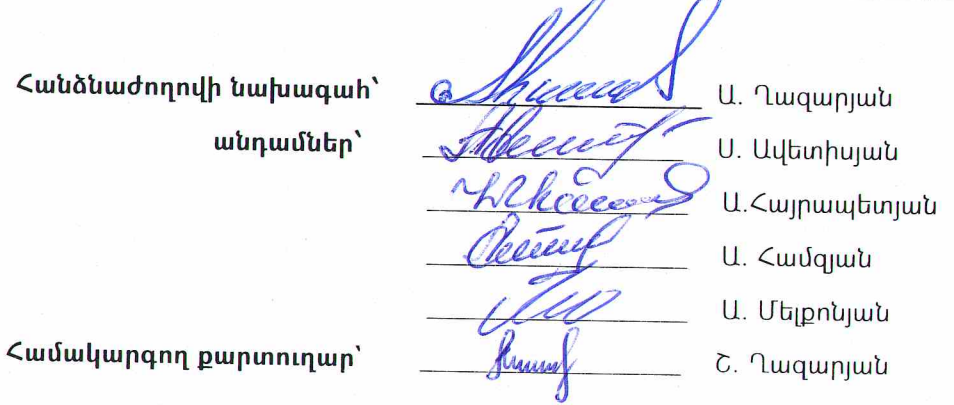 Հանձնաժողովի նախագահ՝ Ա. Ղազարյան
անդամներ՝ Ս. Ավետիսյան
Ա.Հայրապետյան
Ա. Համզյան
Ա. Մելքոնյան
Համակարգող քարտուղար՝ Շ. Ղազարյան